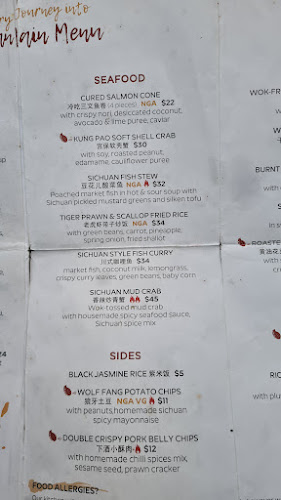 ry Journey into
Menu
SEAFOOD
CURED SALMON CONE
冷吃三文鱼卷 (4 pieces) NGA $22
with crispy nori, desiccated coconut,
avocado & lime puree, caviar
KUNG PAO SOFT SHELL CRAB
宫保软壳蟹 $30
with soy, roasted peanut,
edamame, cauliflower puree
SICHUAN FISH STEW
豆花儿酸菜鱼 NGA $32
Poached market fish in hot & sour soup with
Sichuan pickled mustard greens and silken tofu
TIGER PRAWN & SCALLOP FRIED RICE
老虎虾带子炒饭 NGA $34
with green beans, carrot, pineapple,
spring onion, fried shallot
SICHUAN STYLE FISH CURRY
川式咖喱鱼 $34
market fish, coconut milk, lemongrass,
crispy curry leaves, green beans, baby corn
SICHUAN MUD CRAB
香辣炒青蟹 $45
Wok-tossed mud crab
with housemade spicy seafood sauce,
Sichuan spice mix
SIDES
BLACK JASMINE RICE 紫米饭 $5
WOLF FANG POTATO CHIPS
狼牙土豆 NGA VG $11
with peanuts, homemade sichuan
spicy mayonnaise
DOUBLE CRISPY PORK BELLY CHIPS
下酒小酥肉 $12
with homemade chilli spices mix,
sesame seed, prawn cracker
FOOD ALLERGIES?
WOK-FR
BURNT
ROASTE
RIC
with plu
24